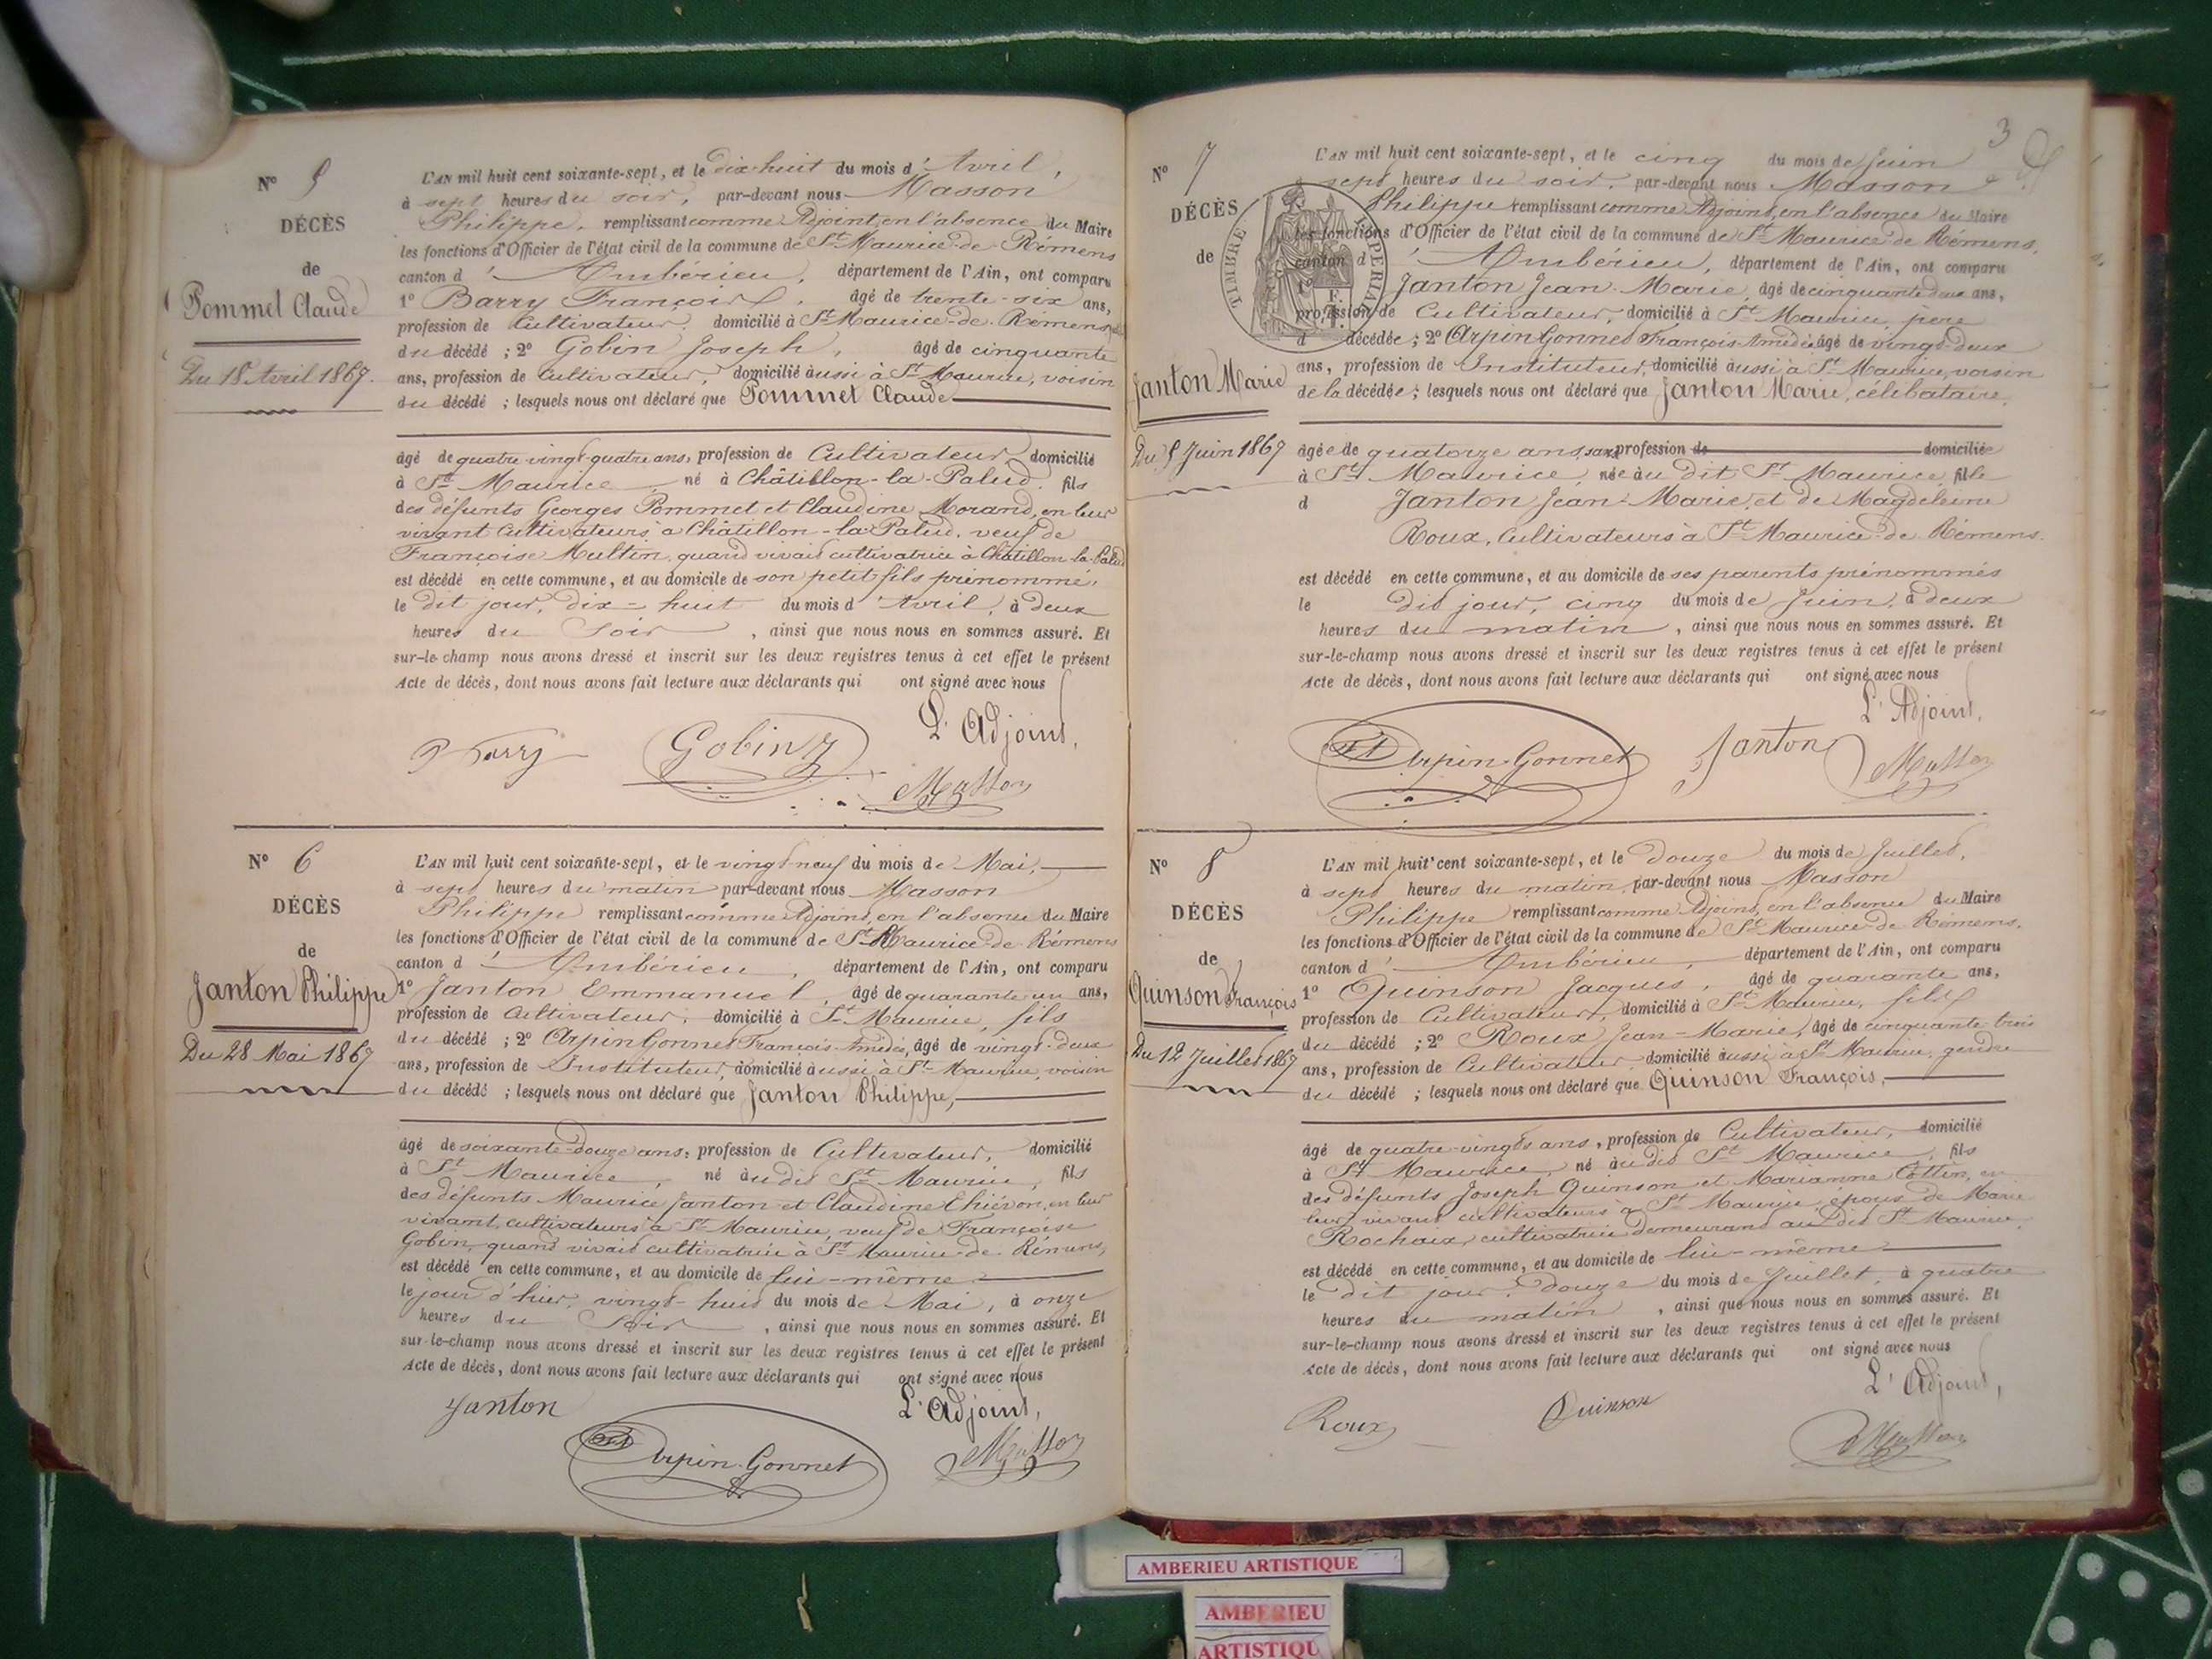 N° 5
DÉCÈS
de
Pommet Claude
Du 18 Avril 1867.
L'AN mil huit cent soixante-sept, et le dix-huit du mois d'Avril,
à sept heures du soir, par-devant nous Masson
Philippe, remplissant comme Adjoint, en l'absence du Maire
les fonctions d'Officier de l'état civil de la commune de St Maurice-de-Rémens
canton d'Ambérieu, département de l'Ain, ont comparu
1° Barry François, âgé de trente-six ans,
profession de Cultivateur, domicilié à St Maurice-de-Rémens,
du décédé ; 2° Gobin Joseph, âgé de cinquante
ans, profession de Cultivateur, domicilié aussi à St Maurice, voisin
du décédé ; lesquels nous ont déclaré que Pommet Claude
âgé de quatre-vingt-quatre ans, profession de Cultivateur domicilié
à St Maurice, né à Châtillon-la-Palud, fils
des défunts Georges Pommet et Claudine Morand, en leur
vivant Cultivateurs à Châtillon-la-Palud, veuf de
Françoise Multin, quand vivait cultivatrice à Châtillon-la-Palud
est décédé en cette commune, et au domicile de son petit fils prénommé,
le dit jour, dix-huit du mois d'Avril, à deux
heures du Soir, ainsi que nous nous en sommes assuré. Et
sur-le-champ nous avons dressé et inscrit sur les deux registres tenus à cet effet le présent
Acte de décès, dont nous avons fait lecture aux déclarants qui ont signé avec nous
L'Adjoint,
Barry Gobin
Masson
N° 6
DÉCÈS
de
Janton Philippe
Du 28 Mai 1867
L'AN mil huit cent soixante-sept, et le vingt-neuf du mois de Mai,
à sept heures du matin par-devant nous Masson
Philippe remplissant comme Adjoint, en l'absence du Maire
les fonctions d'Officier de l'état civil de la commune de St Maurice-de-Rémens
canton d'Ambérieu, département de l'Ain, ont comparu
1° Janton Emmanuel, âgé de quarante un ans,
profession de Cultivateur, domicilié à St Maurice, fils
du décédé ; 2° Arpin Gonnet François-Amédée, âgé de vingt-deux
ans, profession de Instituteur, domicilié aussi à St Maurice, voisin
du décédé ; lesquels nous ont déclaré que Janton Philippe,
âgé de soixante-douze ans, profession de Cultivateur, domicilié
à St Maurice, né au dit St Maurice, fils
des défunts Maurice Janton et Claudine Thiévon, en leur
vivant, cultivateurs à St Maurice, veuf de Françoise
Gobin, quand vivait cultivatrice à St Maurice-de-Rémens,
est décédé en cette commune, et au domicile de lui-même
le jour d'hier, vingt-huit du mois de Mai, à onze
heures du Soir, ainsi que nous nous en sommes assuré. Et
sur-le-champ nous avons dressé et inscrit sur les deux registres tenus à cet effet le présent
Acte de décès, dont nous avons fait lecture aux déclarants qui ont signé avec nous
Janton L'Adjoint,
Arpin-Gonnet Masson
3
N° 7
DÉCÈS
de
Janton Marie
Du 5 Juin 1867
TIMBRE IMPERIAL
1 F.
L'AN mil huit cent soixante-sept, et le cinq du mois de Juin
sept heures du soir, par-devant nous Masson
Philippe remplissant comme Adjoint, en l'absence du Maire
les fonctions d'Officier de l'état civil de la commune de St Maurice de Rémens,
canton d'Ambérieu, département de l'Ain, ont comparu
Janton Jean-Marie, âgé de cinquante deux ans,
profession de Cultivateur, domicilié à St Maurice, père
d décédée ; 2° Arpin Gonnet François-Amédée âgé de vingt-deux
ans, profession de Instituteur, domicilié aussi à St Maurice, voisin
de la décédée ; lesquels nous ont déclaré que Janton Marie, célibataire,
âgée de quatorze ans, sans profession de domiciliée
à St Maurice, née au dit St Maurice, fille
d Janton Jean-Marie, et de Magdeleine
Roux, Cultivateurs à St Maurice-de-Rémens.
est décédé en cette commune, et au domicile de ses parents prénommés
le dit jour, cinq du mois de Juin, à deux
heures du matin, ainsi que nous nous en sommes assuré. Et
sur-le-champ nous avons dressé et inscrit sur les deux registres tenus à cet effet le présent
Acte de décès, dont nous avons fait lecture aux déclarants qui ont signé avec nous
L'Adjoint,
Arpin-Gonnet Janton Masson
N° 8
DÉCÈS
de
Quinson François
Du 12 Juillet 1867
L'AN mil huit cent soixante-sept, et le douze du mois de Juillet,
à sept heures du matin, par-devant nous Masson
Philippe remplissant comme Adjoint, en l'absence du Maire
les fonctions d'Officier de l'état civil de la commune de St Maurice-de-Rémens,
canton d'Ambérieu, département de l'Ain, ont comparu
1° Quinson Jacques, âgé de quarante ans,
profession de Cultivateur, domicilié à St Maurice, fils
du décédé ; 2° Roux Jean-Marie, âgé de cinquante-trois
ans, profession de Cultivateur, domicilié aussi à St Maurice, gendre
du décédé ; lesquels nous ont déclaré que Quinson François,
âgé de quatre-vingts ans, profession de Cultivateur, domicilié
à St Maurice, né au dit St Maurice, fils
des défunts Joseph Quinson et Marianne Cottin, en
leur vivant cultivateurs à St Maurice, époux de Marie
Rochaix, cultivatrice demeurant au dit St Maurice,
est décédé en cette commune, et au domicile de lui-même
le dit jour, douze du mois de Juillet, à quatre
heures du matin, ainsi que nous nous en sommes assuré. Et
sur-le-champ nous avons dressé et inscrit sur les deux registres tenus à cet effet le présent
Acte de décès, dont nous avons fait lecture aux déclarants qui ont signé avec nous
L'Adjoint,
Roux Quinson Masson
AMBERIEU ARTISTIQUE
AMBERIEU
ARTISTIQU